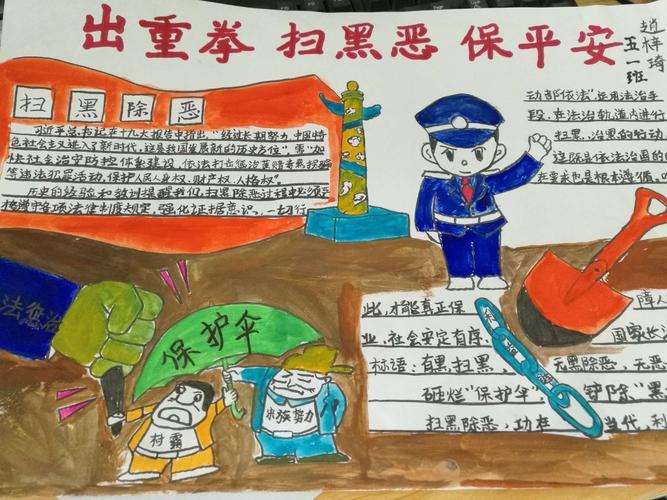 出重拳 扫黑恶 保平安
赵梓琦
五一班
扫黑除恶
习近平总书记在十九大报告中指出,"经过长期努力,中国特
色社会主义进入了新时代,这是我国发展新的历史方位"。需"
加快社会治安防控体系建设,依法打击惩治黄赌毒黑拐骗
等违法犯罪活动,保护人民人身权、财产权、人格权"。
历史的经验和教训提醒我们,扫黑除恶过程中必须严
格遵守各项法律制度规定,强化证据意识,一切行
动都依法",运用法治手
段,在法治轨道内进行
扫黑、治黑的行动
这既是依法治国的
在要求也是根本遵循。
法惩治
保护伞
村霸
族势力
此,才能真正保
障人
业,社会安定有序、
国家长
标语:有黑扫黑,
无黑除恶,无恶
砸烂"保护伞"
铲除"黑
扫黑除恶,功在
当代,利